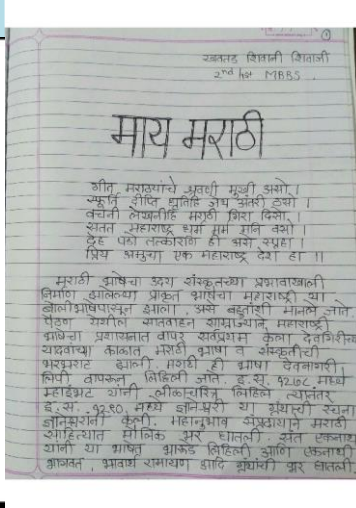 ①
शिवानी शिवानी
2nd MBBS.
माय मराठी
गीत मराठ्यांचे श्रवणी मुखी असो।
स्फूर्ति दीप्ति धृतिहि जेथ अंतरी ठसो।
वचनी लेखनीहि मराठी गिरा दिसो।
सतत महाराष्ट्र धर्म मर्म मनि वसो।
देह पडो तत्कारणि ही असो स्पृहा।
प्रिय अमुचा एक महाराष्ट्र देश हा॥
मराठी भाषेचा उदय संस्कृतच्या प्रभावाखाली
निर्माण झालेल्या प्राकृत भाषेचा महाराष्ट्री या
बोलीभाषेपासून झाला, असे बहुतांशी मानले जाते.
पैठण येथील सातवाहन साम्राज्याने महाराष्ट्री
भाषेचा प्रशासनात वापर सर्वप्रथम केला देवगिरीच्या
यादवांच्या काळात मराठी भाषा व संस्कृतीची
भरभराट झाली. मराठी ही भाषा देवनागरी
लिपी वापरून लिहिली जाते. इ.स. १२७८ मध्ये
म्हाइंभट यांनी लीळाचरित्र लिहिले. त्यानंतर
इ.स. १२९०, मध्ये ज्ञानेश्वरी या ग्रंथाची रचना
ज्ञानेश्वरांनी केली. महानुभाव संप्रदायाने मराठी
साहित्यात मौलिक भर घातली. संत एकनाथ
यांनी या भाषेत भारूड लिहिली आणि एकनाथी
भागवत, भावार्थ रामायण आदि ग्रंथांची भर घातली.